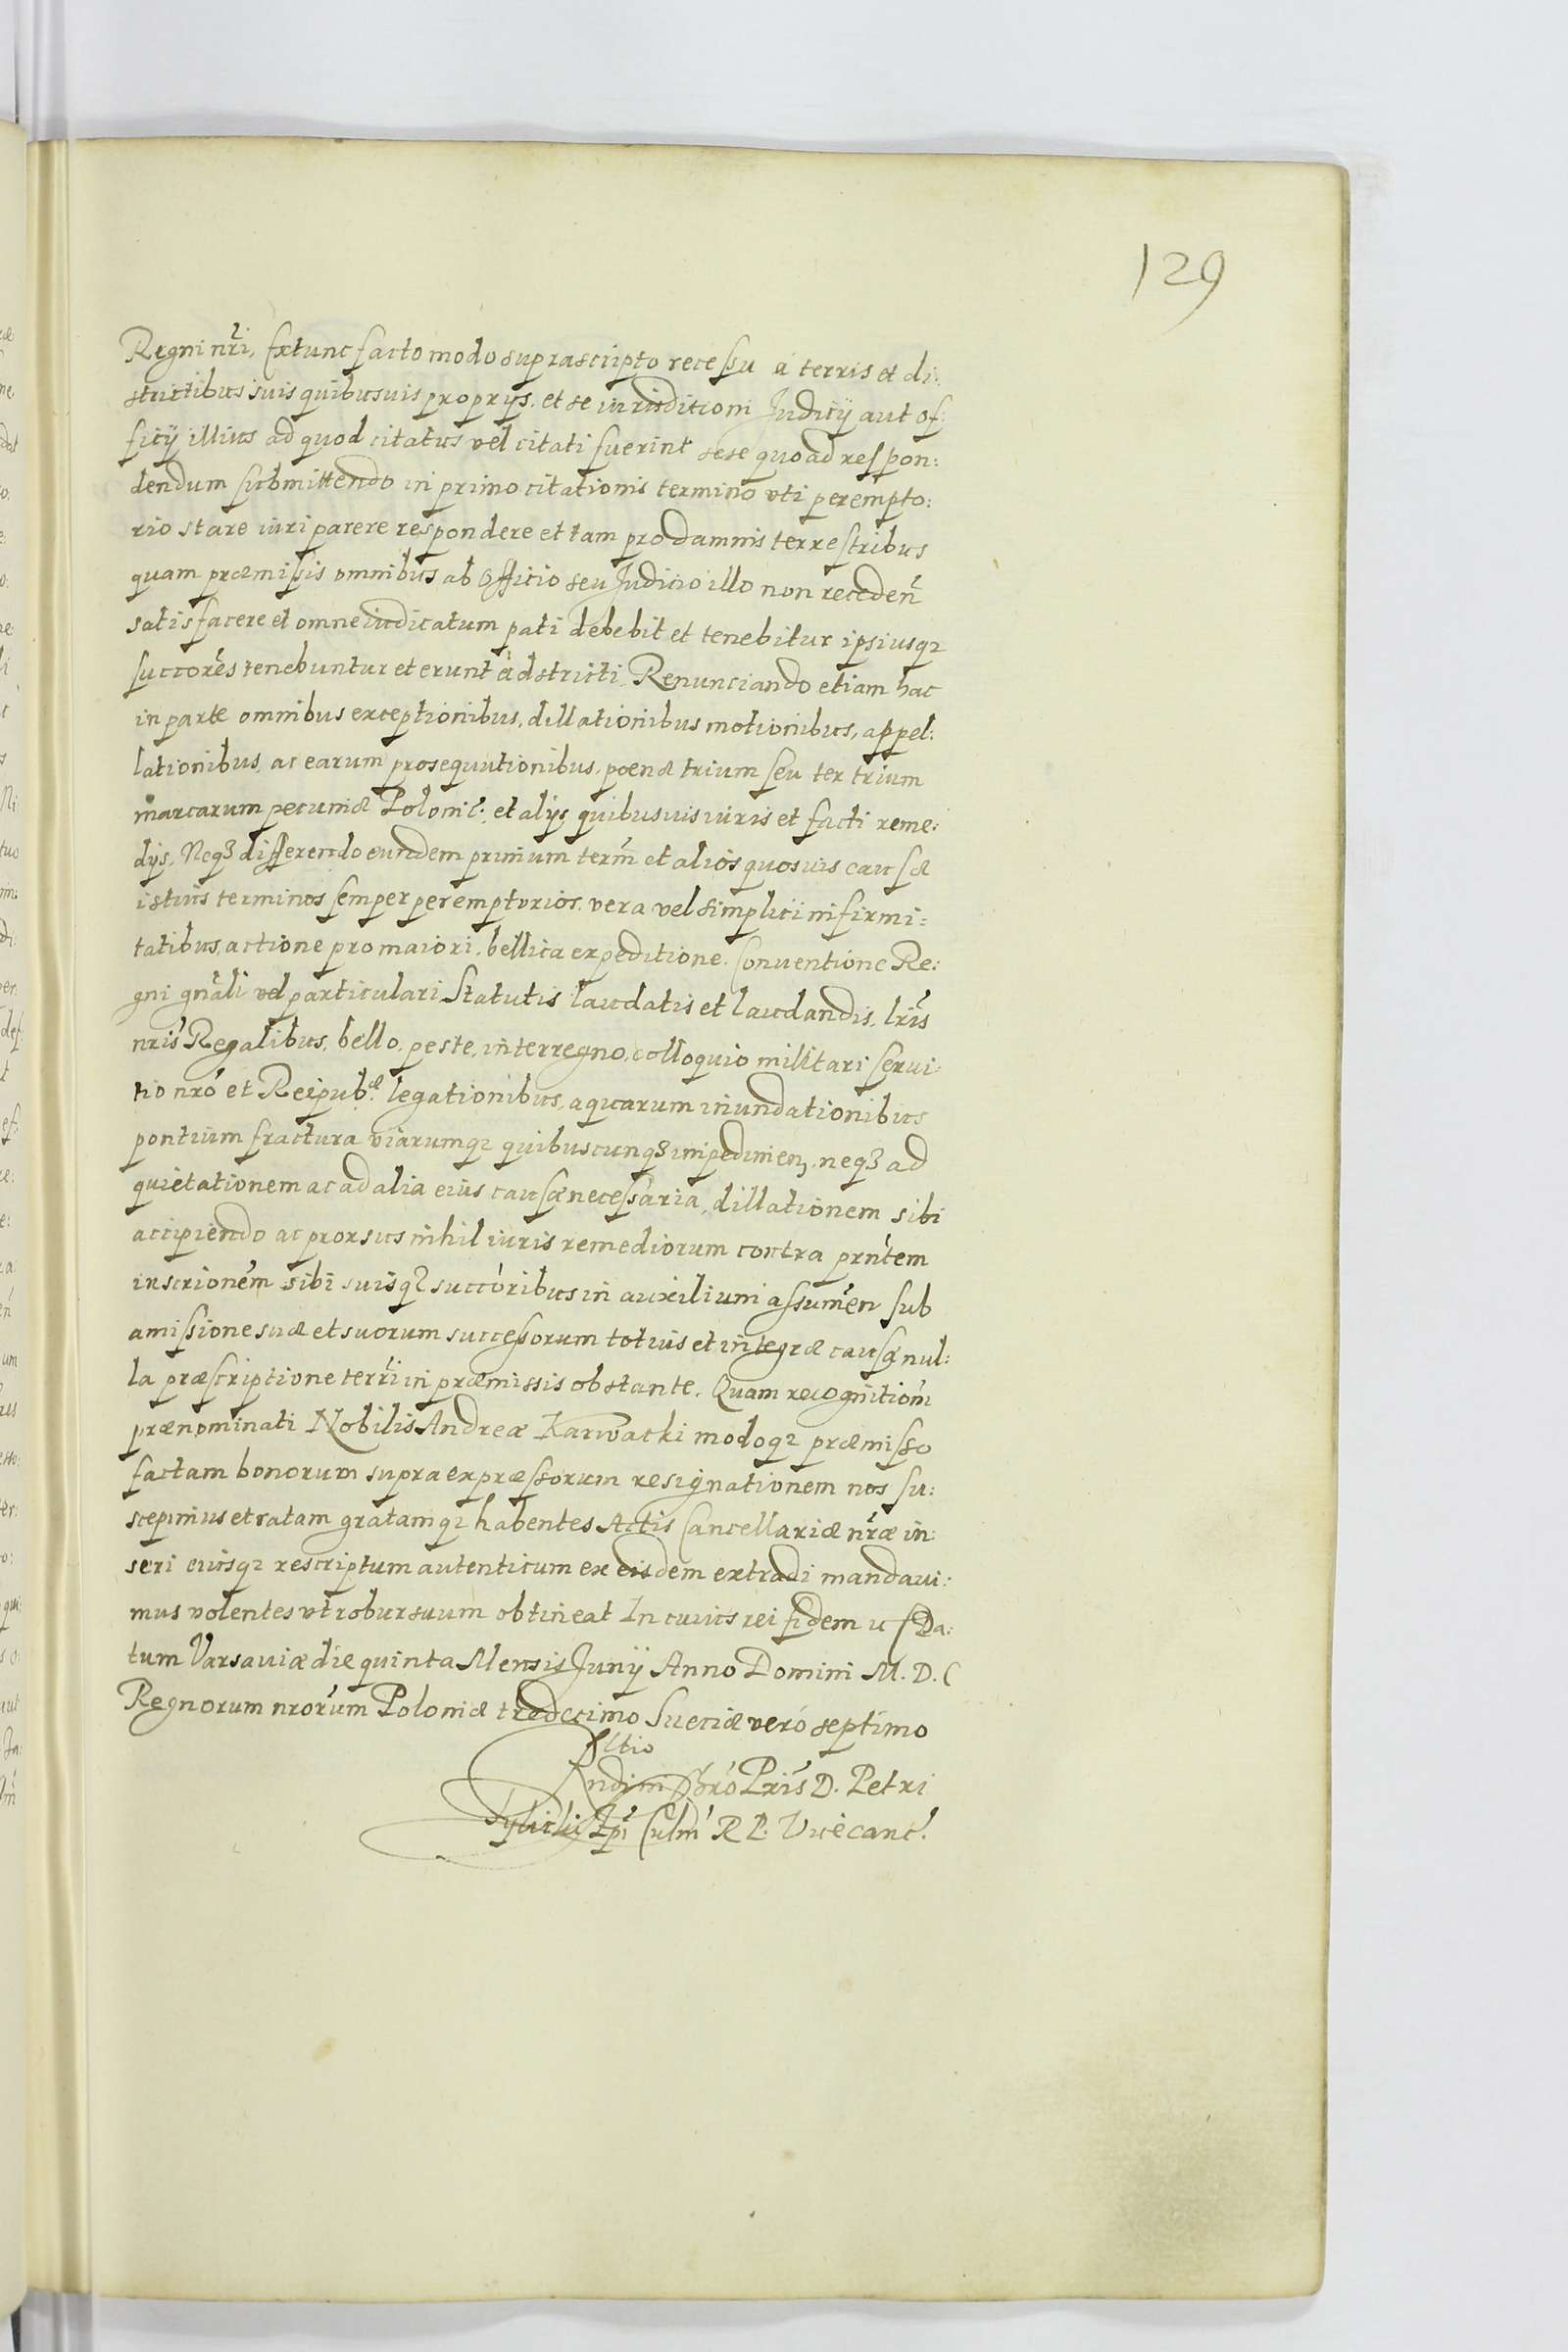 129
Regni nr̃i, Extunc facto modo suprascripto recessu à terris et di:
strictibus suis quibusuis proprijs. et se iurisditioni Judicij aut of:
ficij illius ad quod citatus vel citati fuerint sese quoad respon:
dendum submittendo in primo citationis termino vti perempto:
rio stare iuri parere respondere et tam pro damnis terrestribus
quam præmissis omnibus ab Officio seu Juditio illo non receden̄
satisfacere et omne iudicatum pati debebit et tenebitur ipsiusqꝫ
succores̃ tenebuntur et erunt adstricti. Renunciando etiam hac
in parte omnibus exceptionibus, dillationibus motionibus, appel:
lationibus, ac earum prosequutionibus, pœnæ trium seu ter trium
marcarum pecuniæ Polonic̃. et alijs quibusuis iuris et facti reme:
dijs, Neqꝫ differendo eundem primum term̃ et alios quosuis causæ
istius terminos semper peremptorios. vera vel simplici infirmi:
tatibus, actione pro maiori, bellica expeditione. Conuentione Re:
gni gnãli vel particulari Statutis laudatis et laudandis, lris̃
nris̃ Regalibus, bello, peste, interregno, colloquio militari serui:
tio nrõ et Reipub.æ legationibus, aquarum inundationibus
pontium fractura viarumqꝫ quibuscunqꝫ impedimen. neqꝫ ad
quietationem ac ad alia eius causæ necessaria, dillationem sibi
accipiendo ac prorsus nihil iuris remediorum contra prñtem
inscrionẽm sibi suisqꝫ succoribus in auxilium assumẽn sub
amissione suæ et suorum successorum totius et integræ causæ nul:
la præscriptione terrĩ in præmissis obstante. Quam recognitiom̃
prænominati Nobilis Andreæ Karwacki modoqꝫ præmisso
factam bonorum supra expræssorum resignationem nos su:
scepimus et ratam gratamqꝫ habentes Actis Cancellariæ nr̃æ in:
seri eiusqꝫ rescriptum autenticum ex eisdem extradi mandaui:
mus volentes vt robur suum obtineat In cuius rei fidem Da:
tum Varsauiæ die quinta Mensis Junij Anno Domini M. D. C
Regnorum nrorũm Poloniæ tredecimo Sueciæ verò septimo
Rltio
Rndim Chrõ Prĩs D. Petri
Tylicki Epĩ Culm̃ R P. Vicecanc̃.